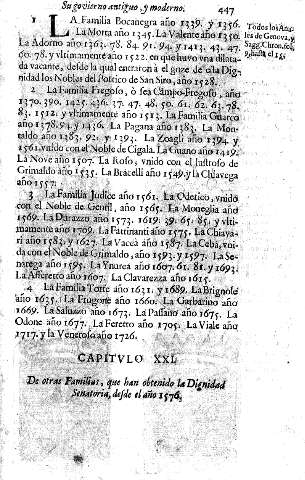 Su govierno antiguo, y moderno. 447
1 LA Familia Bocanegra año 1339. y 1356.
La Motta año 1345. La Valente año 1350.
La Adorno año 1363. 78. 84. 91. 94. y 1413. 43. 47.
78. y vltimamente año 1522. en que huvo vna dilata-
da vacante, desde la qual entraron à el goze de la Dig-
nidad los Nobles del Portico de San Siro, año 1528.
2 La Familia Fregoso, ò sea Campo-Fregoso, año
1370. 390. 1425. 436. 37. 47. 48. 50. 61. 62. 63. 78.
83. 1512. y vltimamente año 1513. La Familia Guarco
año 1378. 94. y 1436. La Pagana año 1383. La Mon-
taldo año 1383. 92. y 1393. La Zoagli año 1394. y
1561. vnido con el Noble de Cigala. La Guano año 1419.
La Nove año 1507. La Roso, vnido con el Iustroso de
Grimaldo año 1535. La Bracelli año 1549. y la Chiavega
año 1557.
3 La Familia Judice año 1561. La Oderico, vnido
con el Noble de Gentil, año 1565. La Moneglia año
1569. La Durazzo año 1573. 1619. 39. 65. 85. y vlti-
mamente año 1709. La Fattinanti año 1575. La Chiava-
ri año 1583. y 1627. La Vacca año 1587. La Ceba, voi-
da con el Noble de Grimaldo, año 1593. y 1597. La Se-
narega año 1595. La Ynurea año 1607. 61. 81. y 1693.
La Afferetto año 1607. La Clavarezza año 1615.
4 La Familia Torre año 1631. y 1689. La Brignole
año 1635. La Frugone año 1660. La Garbarino año
1669. La Saluzzo año 1673. La Passano año 1675. La
Odone año 1677. La Feretto año 1705. La Viale año
1717. y la Veneroso año 1726.
Todos los Ana-
les de Genova, y
Sagg. Chron. fol.
9. hasta el 15.
CAPITVLO XXI.
De otras Familias, que han obtenido la Dignidad
Senatoria, desde el año 1576.